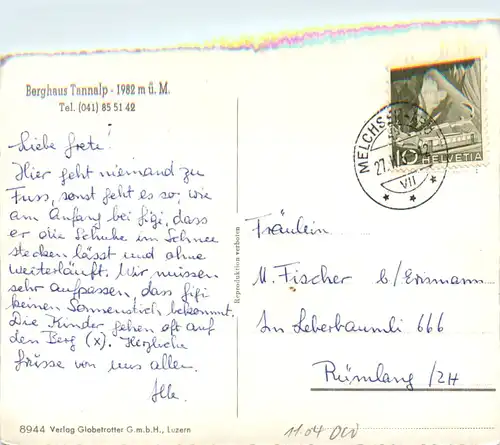 Berghaus Tannalp - 1982 m ü. M.
Tel. (041) 85 51 42
Liebe Grete!
Hier geht niemand zu
Fuss, sonst geht es so, wie
am Anfang bei Gigi, dass
er die Schuhe im Schnee
stecken lässt und ohne
weiterläuft. Wir müssen
sehr aufpassen, dass Gigi
keinen Sonnenstich bekommt.
Die Kinder gehen oft auf
den Berg (x). Herzliche
Grüsse von uns allen.
8944 Verlag Globetrotter G.m.b.H., Luzern
Reproduktion verboten
HELVETIA
10
MELCHSEE
27. VII
VII
Fräulein
M. Fischer b/Erismann
Im Leberbäumli 666
Rümlang /ZH
1104